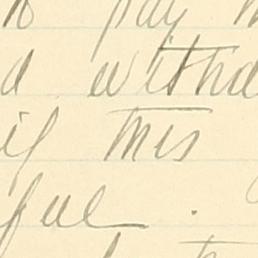 to pay
withd
if this
feel.